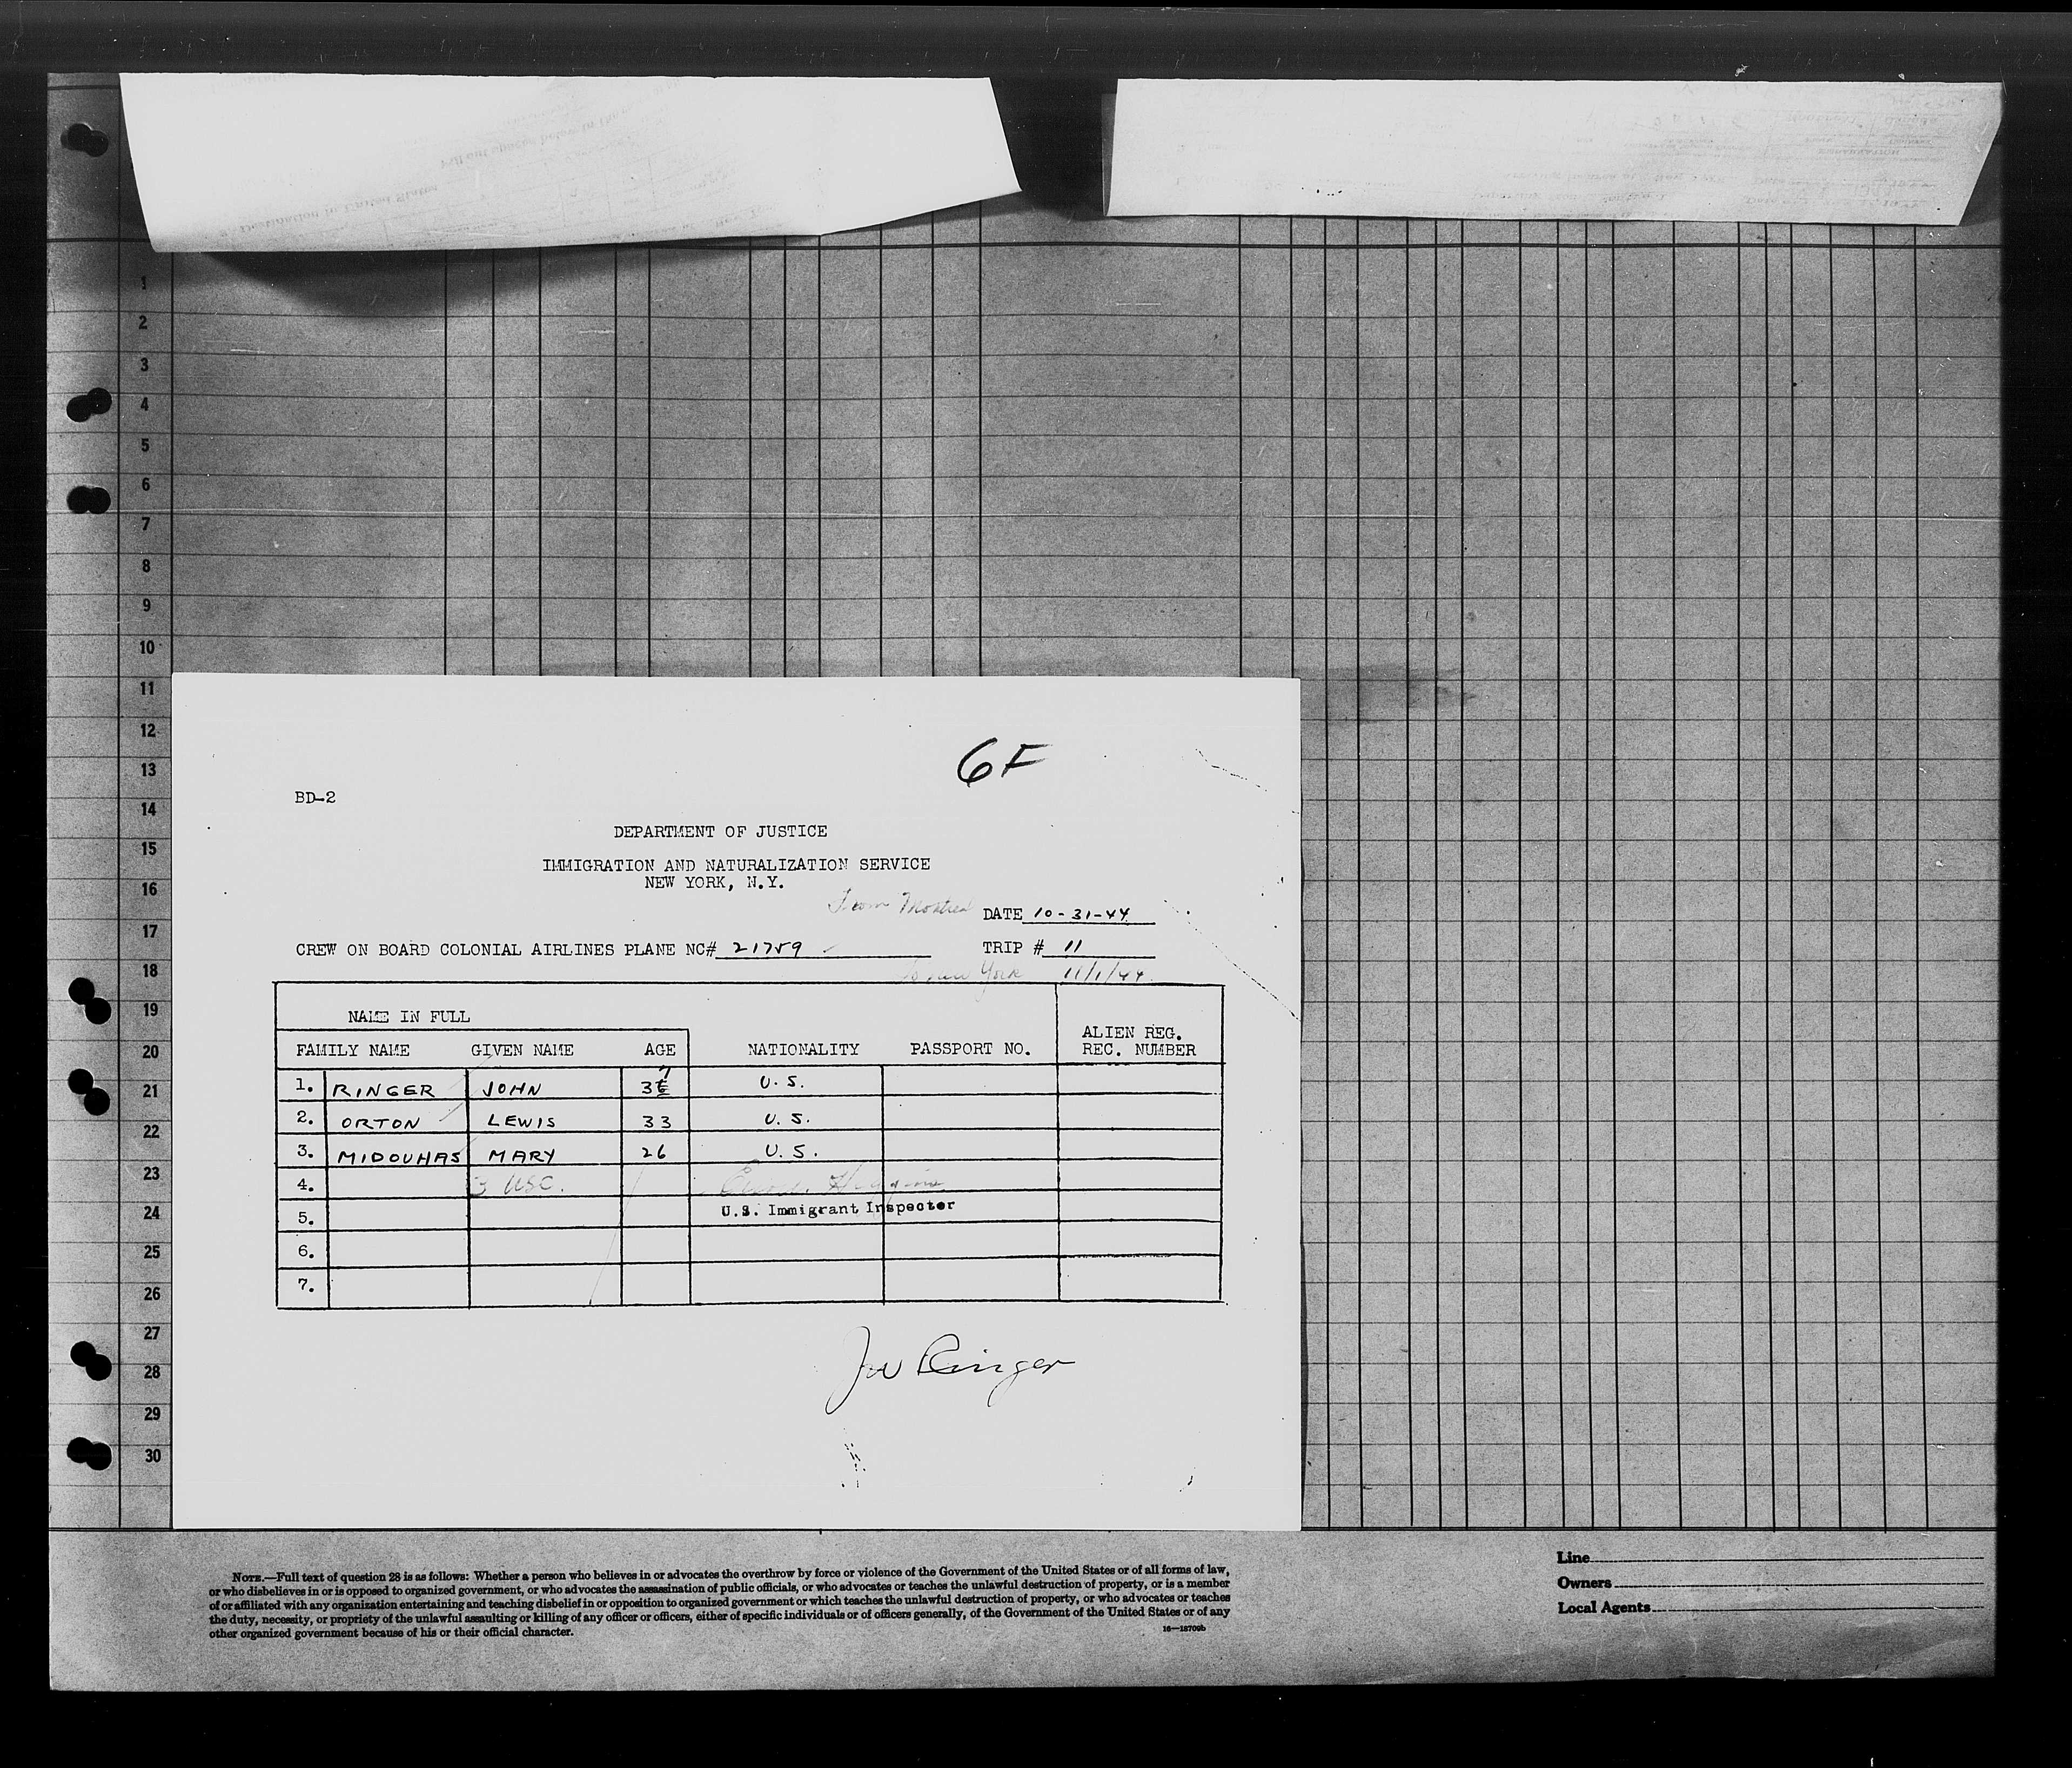 1
2
3
4
5
6
7
8
9
10
11
12
13
14
15
16
17
18
19
20
21
22
23
24
25
26
27
28
29
30
6F
BD-2
DEPARTMENT OF JUSTICE
IMMIGRATION AND NATURALIZATION SERVICE
NEW YORK, N.Y.
From Montreal DATE 10-31-44
CREW ON BOARD COLONIAL AIRLINES PLANE NC# 21759 TRIP # 11
to New York 11/1/44
NAME IN FULL
ALIEN REG.
FAMILY NAME GIVEN NAME AGE NATIONALITY PASSPORT NO. REC. NUMBER
1. RINGER JOHN 37 U.S.
2. ORTON LEWIS 33 U.S.
3. MIDOUHAS MARY 26 U.S.
4. 3 USC. Higgins
5. U.S. Immigrant Inspector
6.
7.
JW Ringer
NOTE.—Full text of question 28 is as follows: Whether a person who believes in or advocates the overthrow by force or violence of the Government of the United States or of all forms of law,
or who disbelieves in or is opposed to organized government, or who advocates the assassination of public officials, or who advocates or teaches the unlawful destruction of property, or is a member
of or affiliated with any organization entertaining and teaching disbelief in or opposition to organized government or which teaches the unlawful destruction of property, or who advocates or teaches
the duty, necessity, or propriety of the unlawful assaulting or killing of any officer or officers, either of specific individuals or of officers generally, of the Government of the United States or of any
other organized government because of his or their official character.
16—18700b
Line
Owners
Local Agents